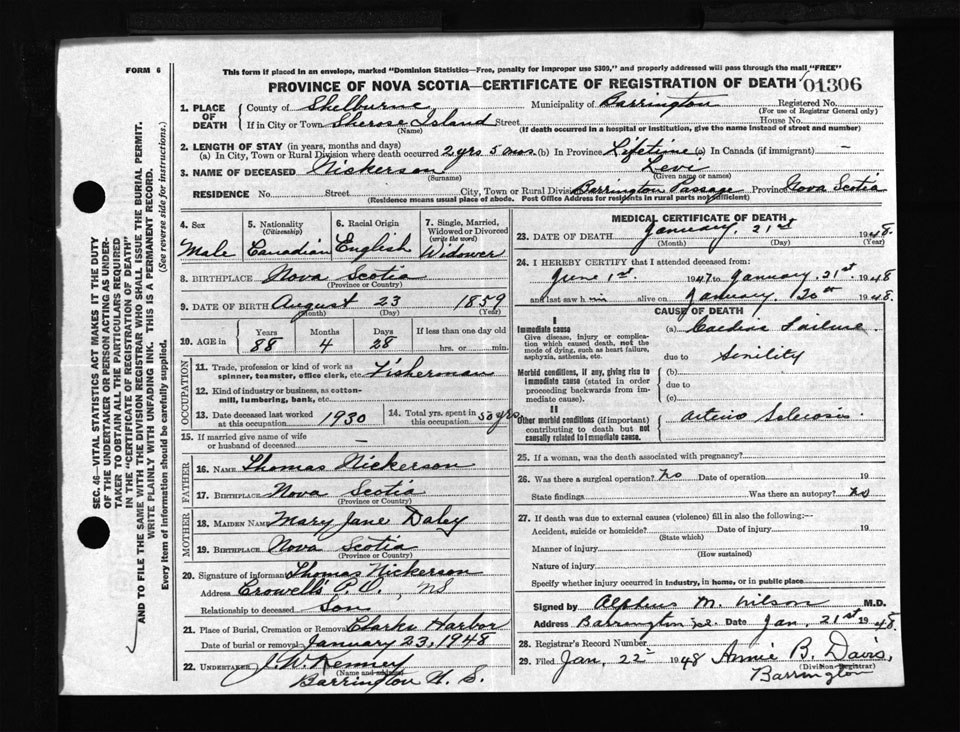 FORM 6
This form if placed in an envelope, marked "Dominion Statistics—Free, penalty for improper use $300," and properly addressed will pass through the mail "FREE"
PROVINCE OF NOVA SCOTIA—CERTIFICATE OF REGISTRATION OF DEATH 01306
1. PLACE OF DEATH
County of Shelburne Municipality of Barrington Registered No.
(For use of Registrar General only)
If in City or Town Sherose Island Street House No.
(Name) (If death occurred in a hospital or institution, give the name instead of street and number)
2. LENGTH OF STAY (in years, months and days)
(a) In City, Town or Rural Division where death occurred 2 yrs 5 mos. (b) In Province Lifetime (c) In Canada (if immigrant) —
3. NAME OF DECEASED Nickerson Levi
(Surname) (Given name or names)
RESIDENCE No. Street City, Town or Rural Division Barrington Passage Province Nova Scotia
(Residence means usual place of abode. Post Office Address for residents in rural parts not sufficient)
4. Sex Male
5. Nationality (Citizenship) Canadian
6. Racial Origin English
7. Single, Married, Widowed or Divorced (write the word) Widower
8. BIRTHPLACE Nova Scotia
(Province or Country)
9. DATE OF BIRTH August 23 1859
(Month) (Day) (Year)
10. AGE in Years 88 Months 4 Days 28 If less than one day old
hrs. or min.
OCCUPATION
11. Trade, profession or kind of work as spinner, teamster, office clerk, etc. Fisherman
12. Kind of industry or business, as cotton-mill, lumbering, bank, etc.
13. Date deceased last worked at this occupation 1930
14. Total yrs. spent in this occupation 50 yrs.
15. If married give name of wife or husband of deceased —
FATHER
16. NAME Thomas Nickerson
17. BIRTHPLACE Nova Scotia
(Province or Country)
MOTHER
18. MAIDEN NAME Mary Jane Daley
19. BIRTHPLACE Nova Scotia
(Province or Country)
20. Signature of informant Thomas Nickerson
Address Crowell's P.O., NS
Relationship to deceased Son
21. Place of Burial, Cremation or Removal Clarks Harbor
Date of burial or removal January 23, 1948
22. UNDERTAKER J. W. Kenney
(Name and address)
Barrington N. S.
MEDICAL CERTIFICATE OF DEATH
23. DATE OF DEATH January, 21st 1948.
(Month) (Day) (Year)
24. I HEREBY CERTIFY that I attended deceased from:
June 1st 1947 to January. 21st. 1948
and last saw him alive on January. 20th 1948.
CAUSE OF DEATH
I
Immediate cause
Give disease, injury or complication which caused death, not the mode of dying, such as heart failure, asphyxia, asthenia, etc.
(a) Cardiac Failure
due to Senility
Morbid conditions, if any, giving rise to immediate cause (stated in order proceeding backwards from immediate cause).
(b)
due to
(c)
II
Other morbid conditions (if important) contributing to death but not causally related to immediate cause.
Arterio Sclerosis
25. If a woman, was the death associated with pregnancy?
26. Was there a surgical operation? No Date of operation 19
State findings Was there an autopsy? No
27. If death was due to external causes (violence) fill in also the following:—
Accident, suicide or homicide? Date of injury 19
(State which)
Manner of injury
(How sustained)
Nature of injury
Specify whether injury occurred in industry, in home, or in public place
Signed by Alpheus M. Wilson M.D.
Address Barrington Date Jan, 21st 1948.
28. Registrar's Record Number
29. Filed Jan, 22 1948 Annie B. Davis,
(Division Registrar)
Barrington
SEC. 46—VITAL STATISTICS ACT MAKES IT THE DUTY
OF THE UNDERTAKER OR PERSON ACTING AS UNDER-
TAKER TO OBTAIN ALL THE PARTICULARS REQUIRED
IN THE "CERTIFICATE OF REGISTRATION OF DEATH"
AND TO FILE THE SAME WITH THE DIVISION REGISTRAR WHO SHALL ISSUE THE BURIAL PERMIT.
WRITE PLAINLY WITH UNFADING INK. THIS IS A PERMANENT RECORD.
Every item of information should be carefully supplied. (See reverse side for instructions.)